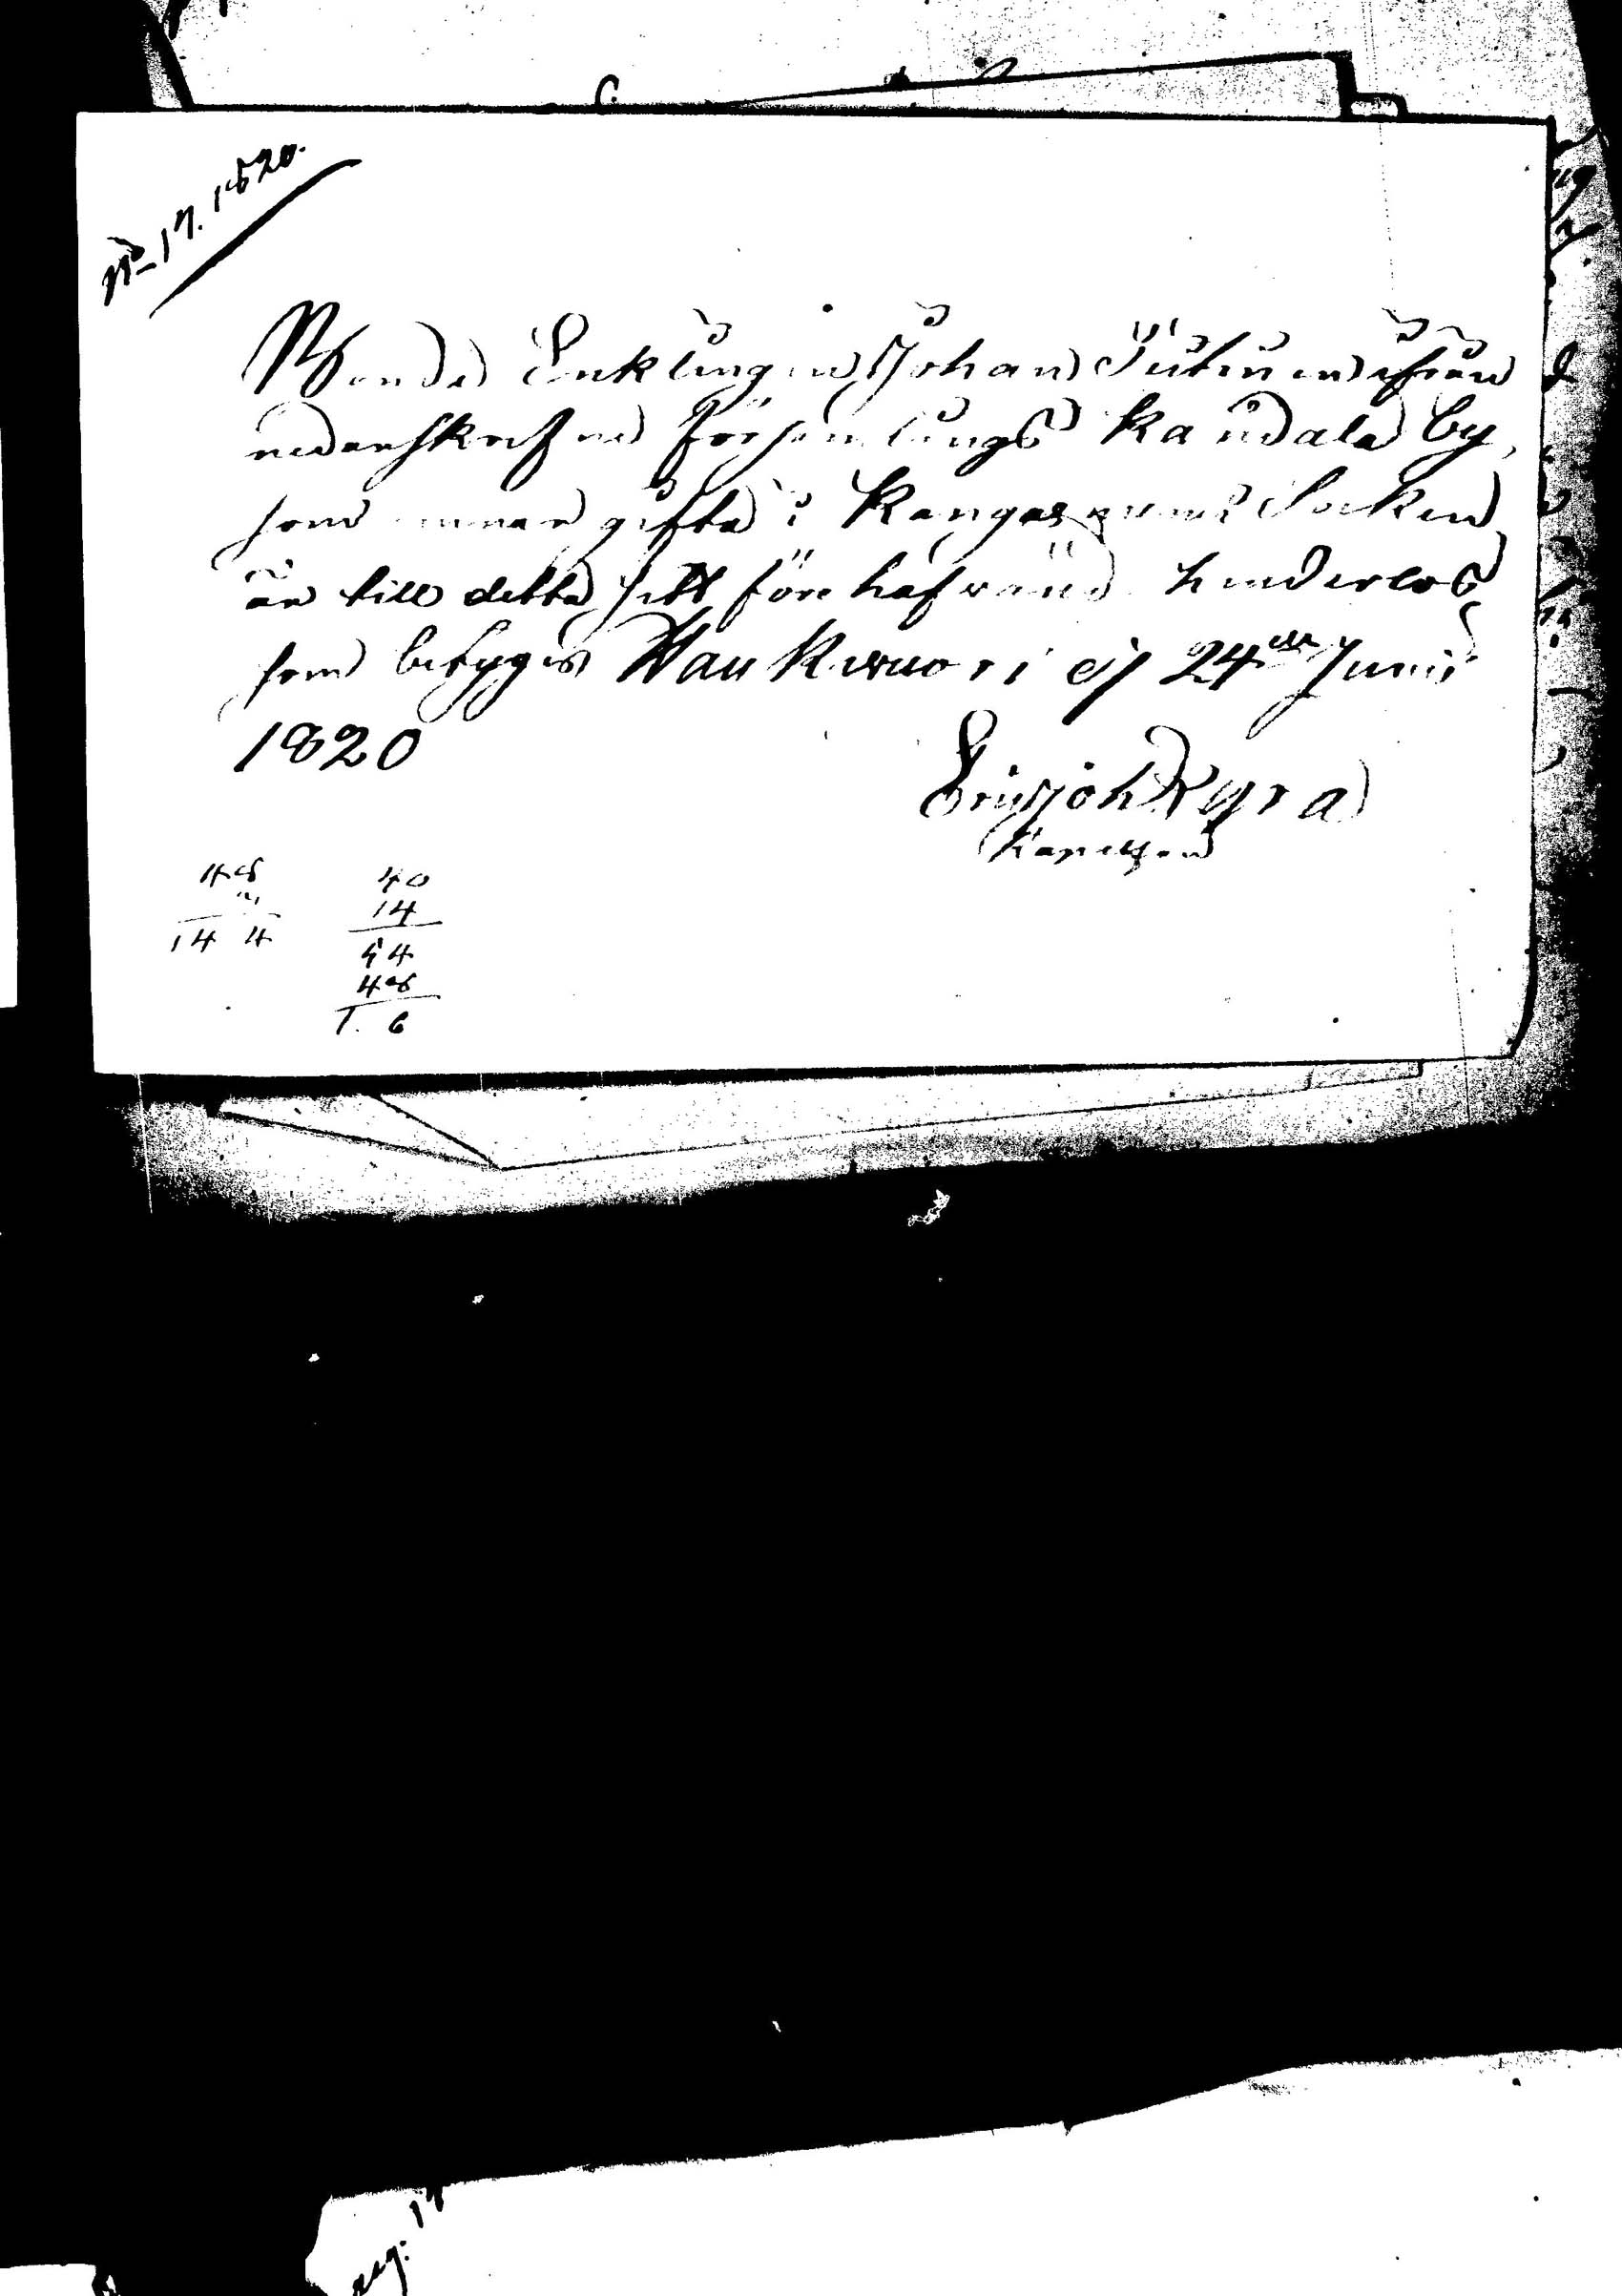 No 17. 1820.
Bonde Enklingen Johan Tutuinen ifrån
nedanskrefne Församlings Kandala by,
som ärnar gifta i Kangasniemi Socken
är till detta sitt förehafvande hinderlös
som betygas Wankawuori d 24de Junii
1820
Eric Joh Kyra
Kapellan
48 40
14
14 4 54
48
1. 6